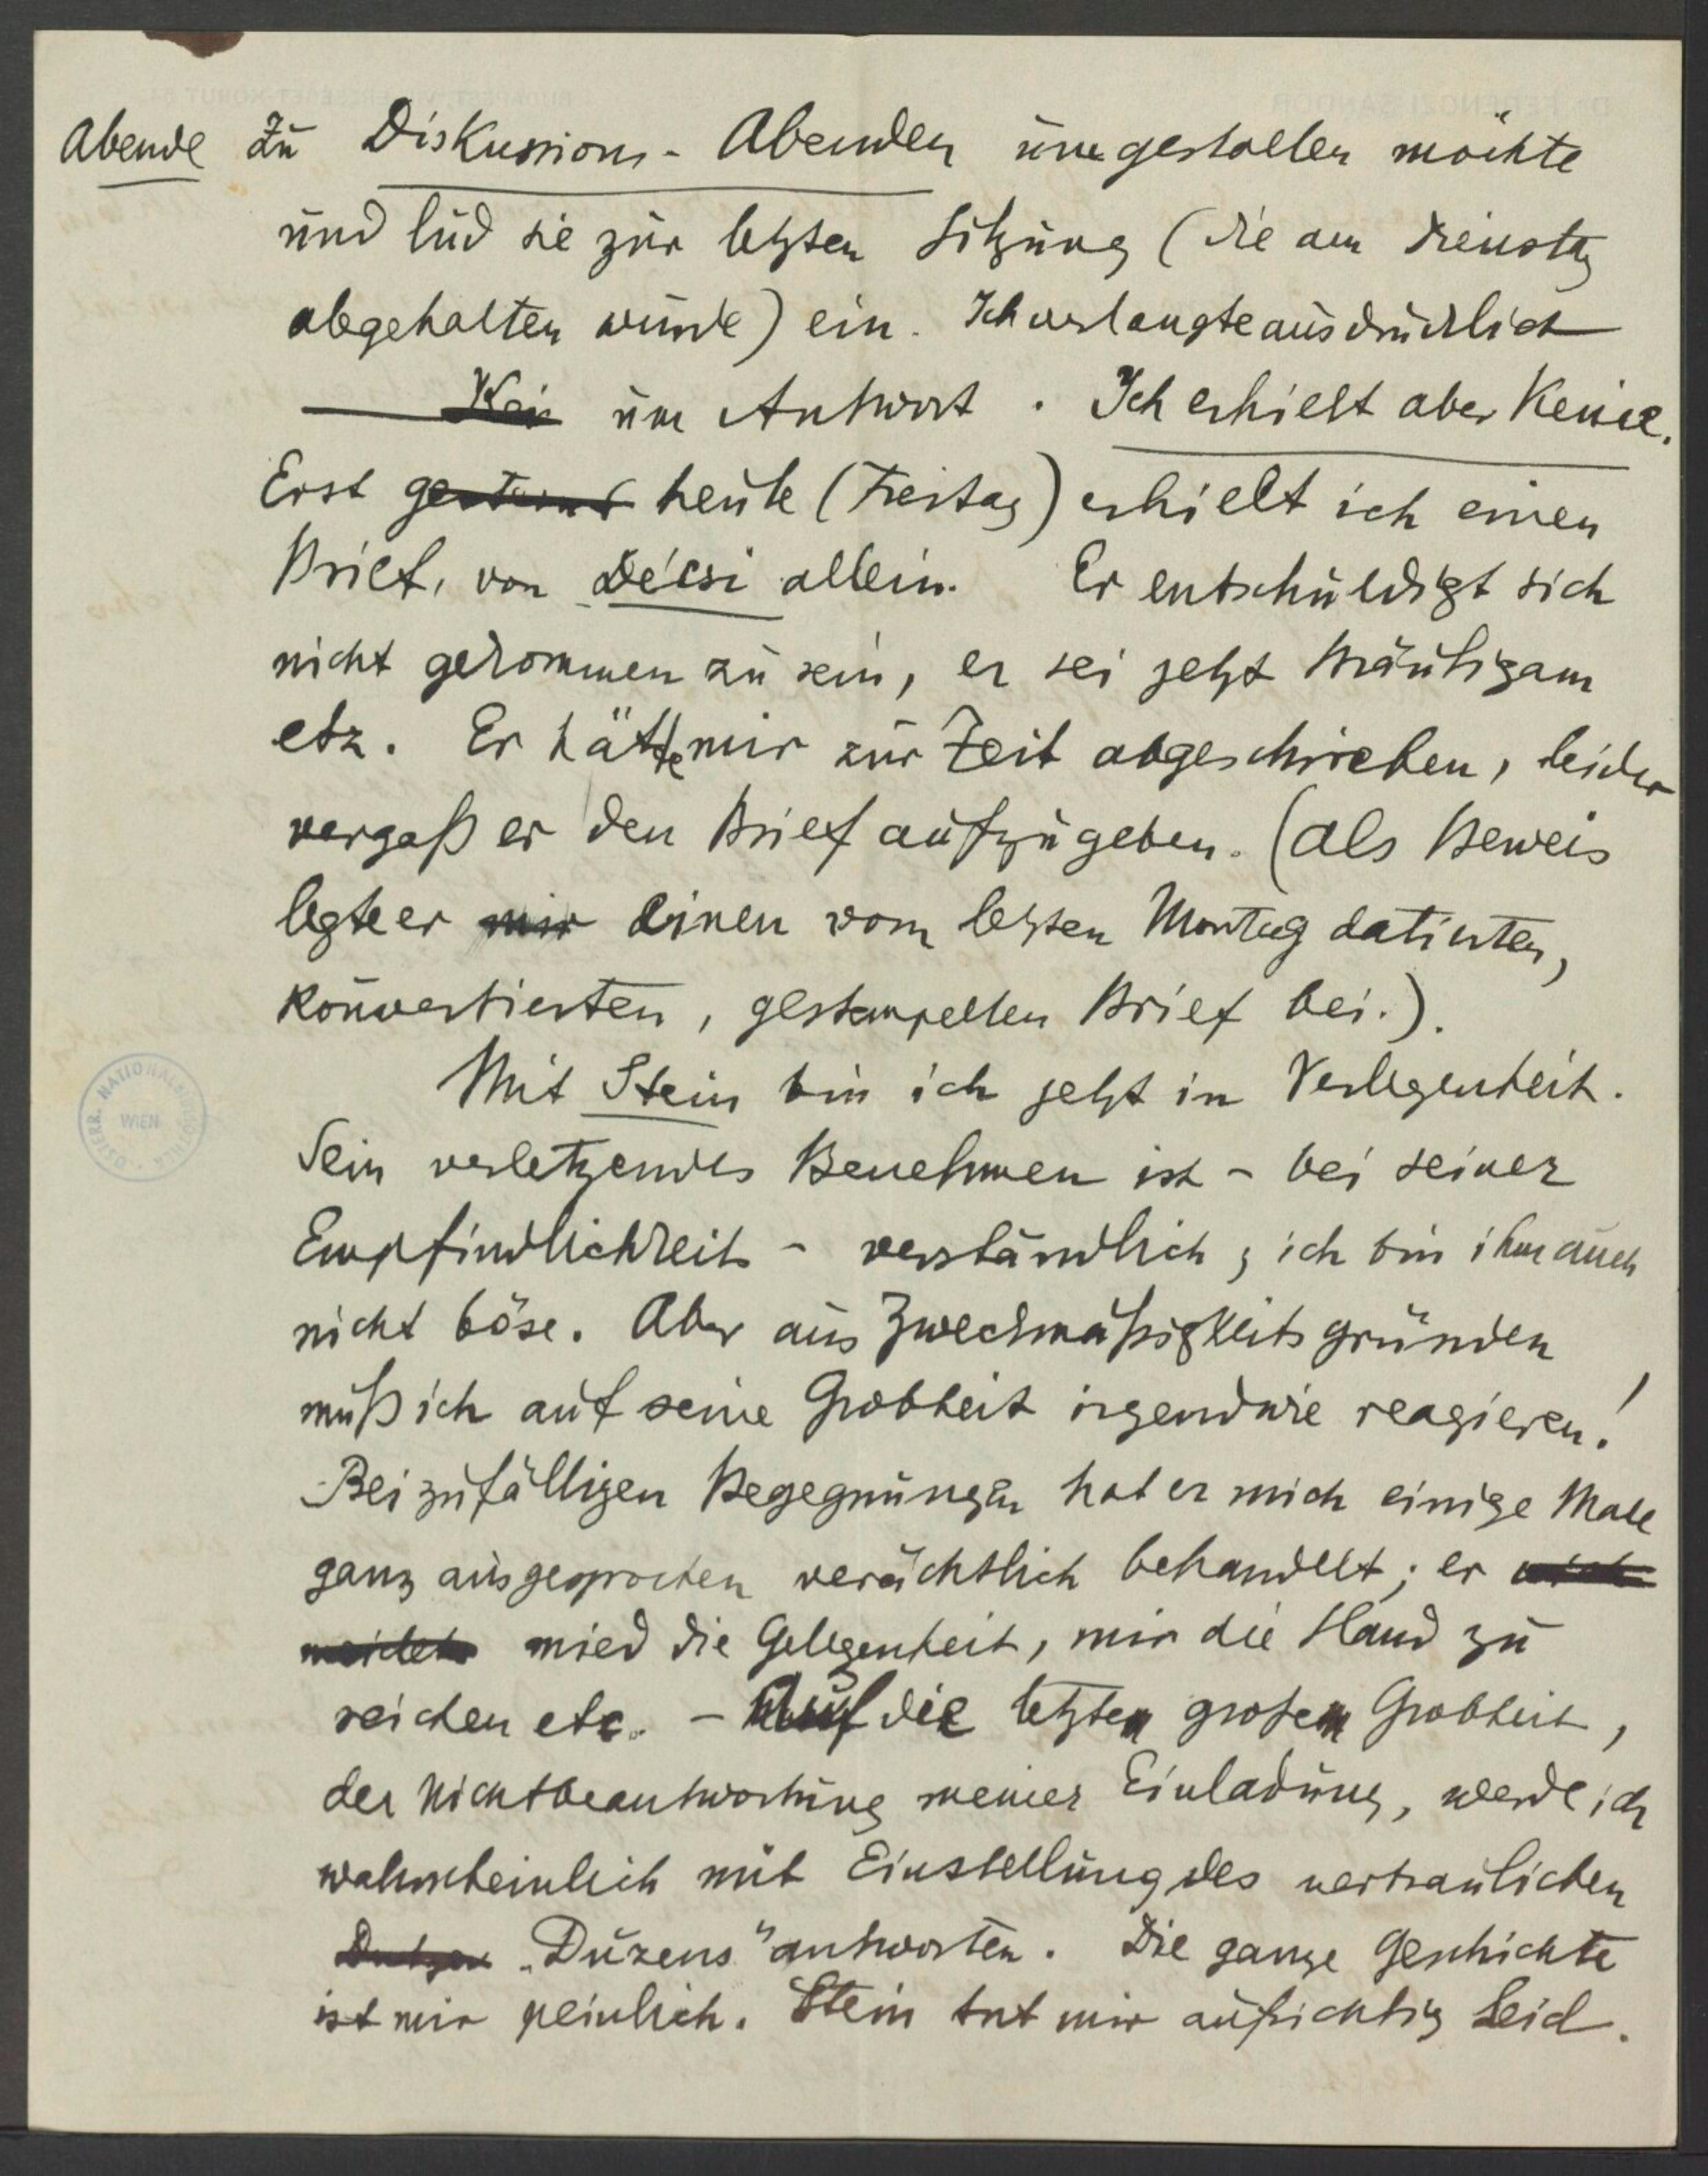 Abende zu Diskussions-Abenden umgestalten möchte
und lud sie zur letzten Sitzung (die am Dienstag
abgehalten wurde) ein. Ich verlangte ausdrücklich
Kein um Antwort. Ich erhielt aber Keine.
Erst heute (Freitag) erhielt ich einen
Brief, von Décsi allein. Er entschuldigt sich
nicht gekommen zu sein, er sei jetzt Bräutigam
etz. Er hätte mir zur Zeit abgeschrieben, leider
vergaß er den Brief aufzugeben. (Als Beweis
legte er mir einen vom letzten Montag datierten,
Kouvertierten, gestempelten Brief bei.).
Mit Stein bin ich jetzt in Verlegenheit.
Sein verletzendes Benehmen ist - bei seiner
Empfindlichkeit - verständlich, ich bin ihm auch
nicht böse. Aber aus Zweckmäßigkeitsgründen
muß ich auf seine Grobheit irgendwie reagieren!
Bei zufälligen Begegnungen hat er mich einige Male
ganz ausgesprochen verächtlich behandelt; er
mied die Gelegenheit, mir die Hand zu
reichen etc. - Auf die letzte große Grobheit,
der Nichtbeantwortung meiner Einladung, werde ich
wahrscheinlich mit Einstellung des vertraulichen
„Duzens" antworten. Die ganze Geschichte
ist mir peinlich. Stein tut mir aufrichtig Leid.
ÖSTERR. NATIONALBIBLIOTHEK
WIEN